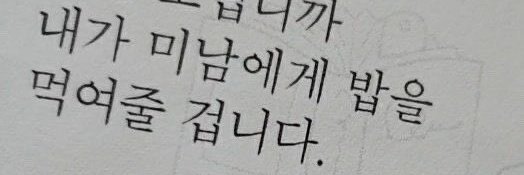 니까
내가 미남에게 밥을
먹여줄 겁니다.